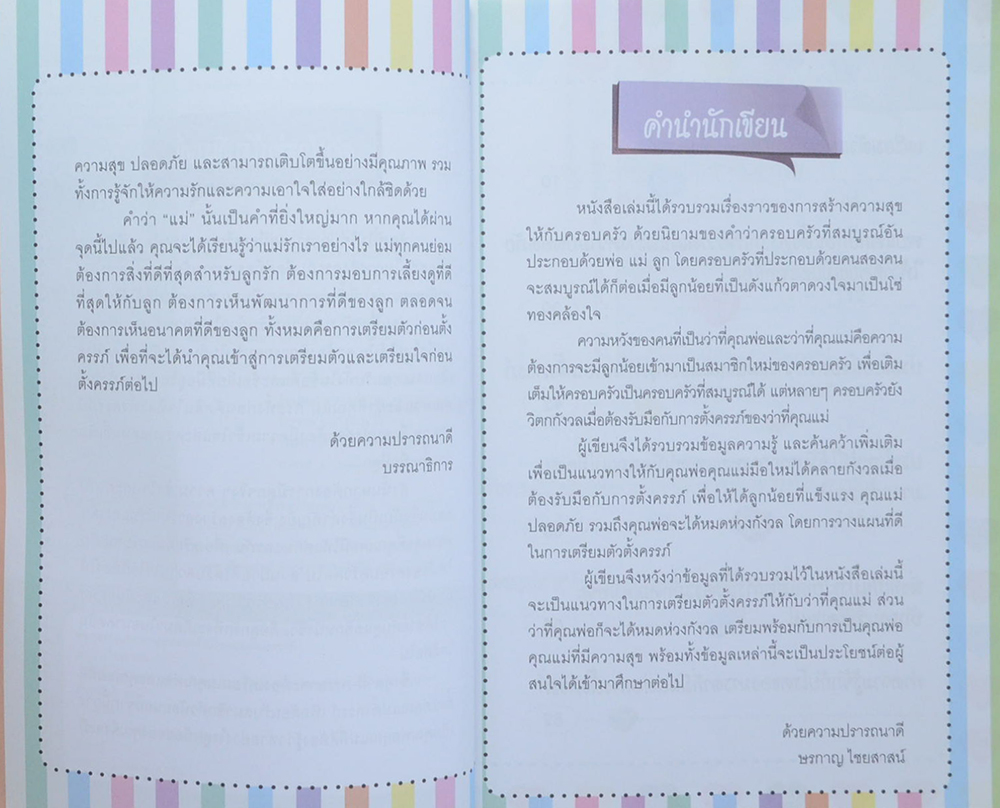 ความสุข ปลอดภัย และสามารถเติบโตขึ้นอย่างมีคุณภาพ รวม
ทั้งการรู้จักให้ความรักและความเอาใจใส่อย่างใกล้ชิดด้วย
คำว่า “แม่” นั้นเป็นคำที่ยิ่งใหญ่มาก หากคุณได้ผ่าน
จุดนี้ไปแล้ว คุณจะได้เรียนรู้ว่าแม่รักเราอย่างไร แม่ทุกคนย่อม
ต้องการสิ่งที่ดีที่สุดสำหรับลูกรัก ต้องการมอบการเลี้ยงดูที่ดี
ที่สุดให้กับลูก ต้องการเห็นพัฒนาการที่ดีของลูก ตลอดจน
ต้องการเห็นอนาคตที่ดีของลูก ทั้งหมดคือการเตรียมตัวก่อนตั้ง
ครรภ์ เพื่อที่จะได้นำคุณเข้าสู่การเตรียมตัวและเตรียมใจก่อน
ตั้งครรภ์ต่อไป
ด้วยความปรารถนาดี
บรรณาธิการ
คำนำนักเขียน
หนังสือเล่มนี้ได้รวบรวมเรื่องราวของการสร้างความสุข
ให้กับครอบครัว ด้วยนิยามของคำว่าครอบครัวที่สมบูรณ์อัน
ประกอบด้วยพ่อ แม่ ลูก โดยครอบครัวที่ประกอบด้วยคนสองคน
จะสมบูรณ์ได้ก็ต่อเมื่อมีลูกน้อยที่เป็นดังแก้วตาดวงใจมาเป็นโซ่
ทองคล้องใจ
ความหวังของคนที่เป็นว่าที่คุณพ่อและว่าที่คุณแม่คือความ
ต้องการจะมีลูกน้อยเข้ามาเป็นสมาชิกใหม่ของครอบครัว เพื่อเติม
เต็มให้ครอบครัวเป็นครอบครัวที่สมบูรณ์ได้ แต่หลายๆ ครอบครัวยัง
วิตกกังวลเมื่อต้องรับมือกับการตั้งครรภ์ของว่าที่คุณแม่
ผู้เขียนจึงได้รวบรวมข้อมูลความรู้ และค้นคว้าเพิ่มเติม
เพื่อเป็นแนวทางให้กับคุณพ่อคุณแม่มือใหม่ได้คลายกังวลเมื่อ
ต้องรับมือกับการตั้งครรภ์ เพื่อให้ได้ลูกน้อยที่แข็งแรง คุณแม่
ปลอดภัย รวมถึงคุณพ่อจะได้หมดห่วงกังวล โดยการวางแผนที่ดี
ในการเตรียมตัวตั้งครรภ์
ผู้เขียนจึงหวังว่าข้อมูลที่ได้รวบรวมไว้ในหนังสือเล่มนี้
จะเป็นแนวทางในการเตรียมตัวตั้งครรภ์ให้กับว่าที่คุณแม่ ส่วน
ว่าที่คุณพ่อก็จะได้หมดห่วงกังวล เตรียมพร้อมกับการเป็นคุณพ่อ
คุณแม่ที่มีความสุข พร้อมทั้งข้อมูลเหล่านี้จะเป็นประโยชน์ต่อผู้
สนใจได้เข้ามาศึกษาต่อไป
ด้วยความปรารถนาดี
ษรกาญ ไชยสาสน์